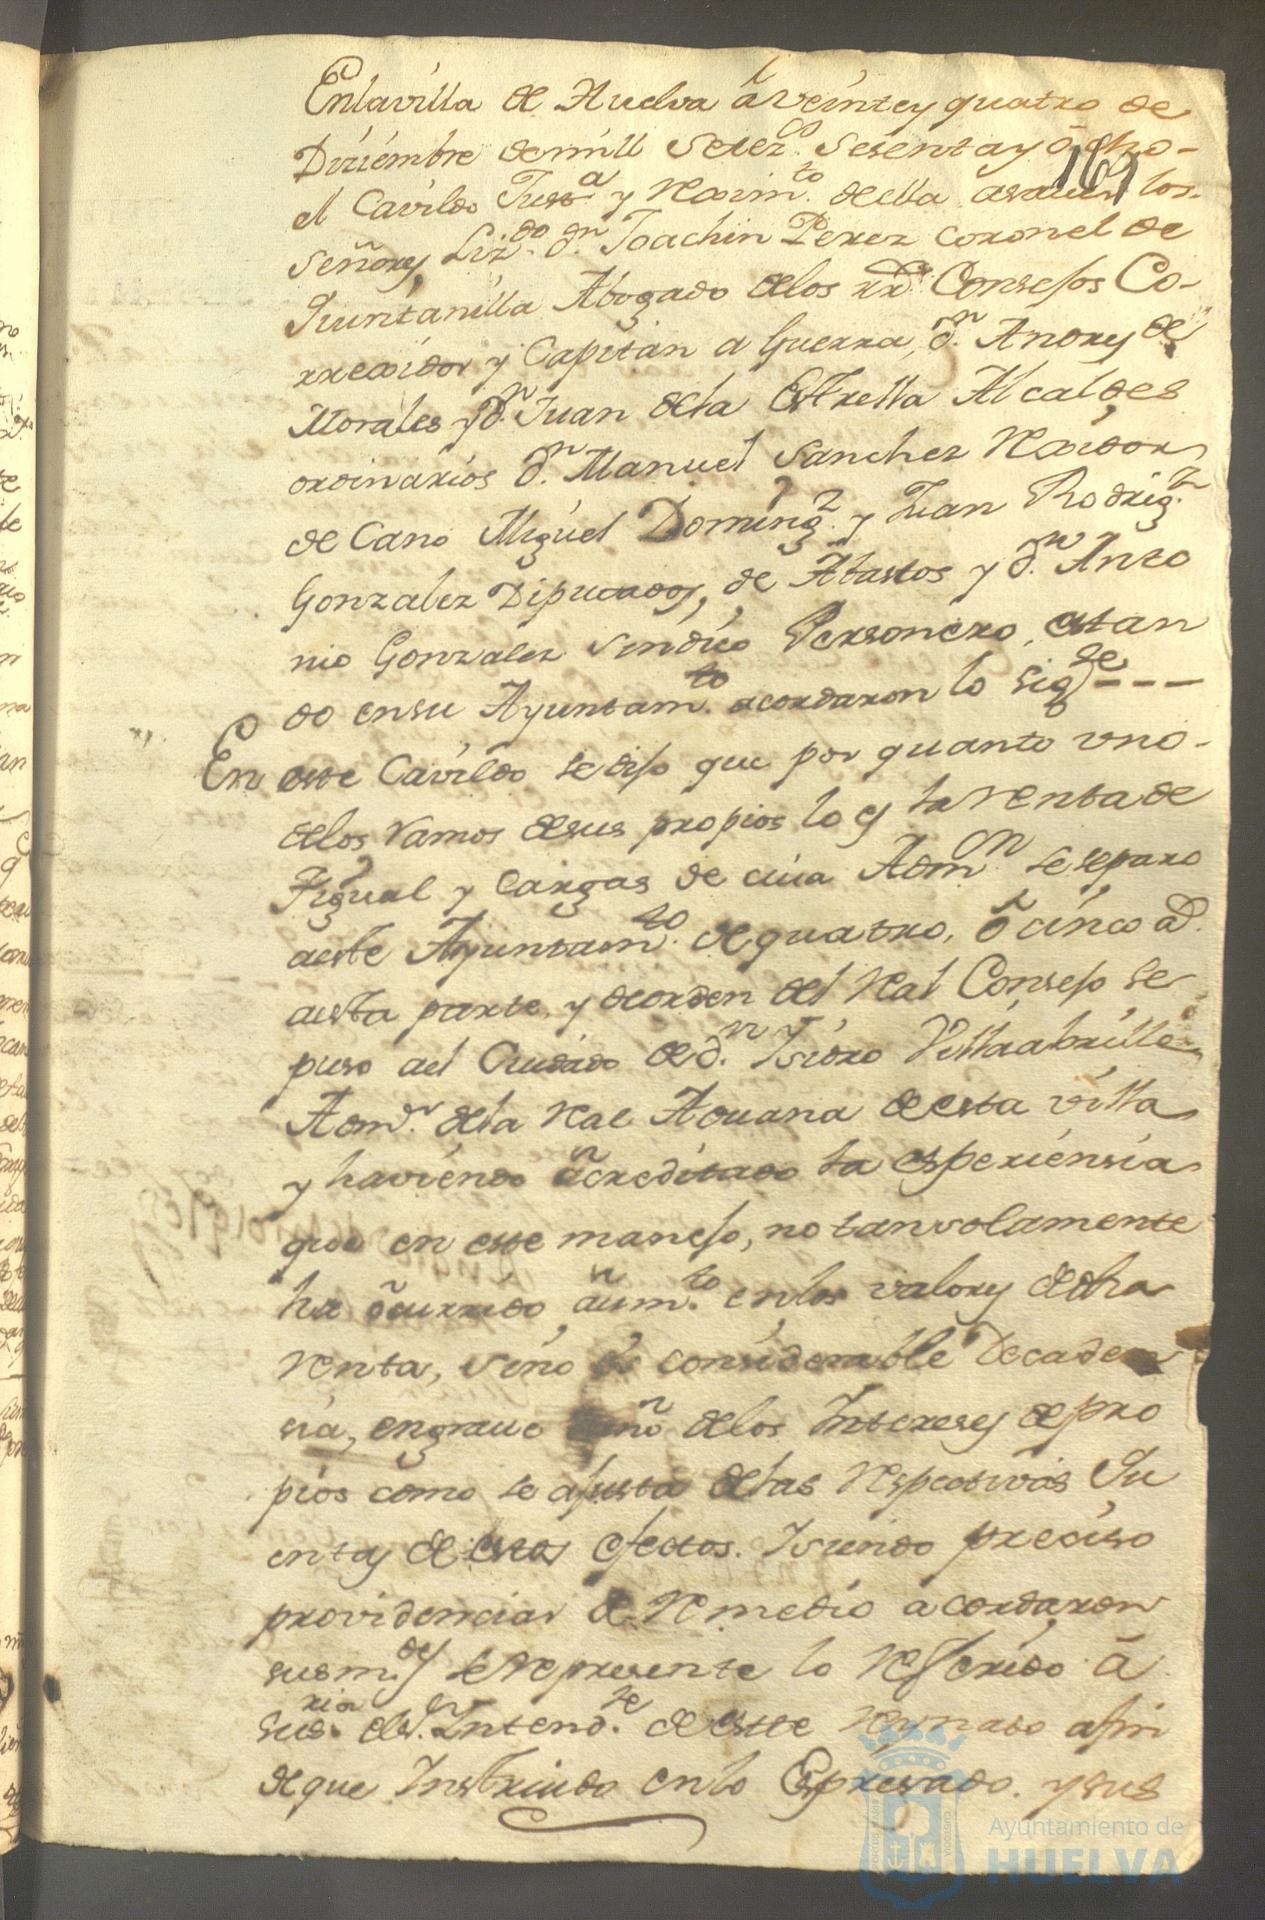 En la villa de Huelva â veinte y quatro de
Diziembre de mill setez.os sesenta y ôcho-
161
el Cavildo Just.a y Reximto. de ella asaver los
Señores Lizdo. dn. Joachin Perez coronel de
Quintanilla Abogado de los rrs. Consejos Co-
rrexidor y Capitan a Guerra, dn. Andres de
Morales y dn. Juan de la Estrella Alcaldes
ordinarios dn. Manuel Sanchez Rexidor
de Cano Miguel Domingz. y Juan Rodrigz.
Gonzalez Diputados, de Abastos y dn. Anto
nio Gonzalez sindico Personero, estan
do en su Ayuntamto. acordaron lo sigte---
En este Cavildo se dijo que por quanto uno-
de los ramos de sus propios lo es la renta de
Jigual y Cargas de cuia Admon se separo
a este Ayuntamto. de quatro, ô cinco as.
a esta parte, y de orden del Real Consejo se
puso al Cuidado de dn. Ysidro Villaabrille
Admr. de la Real Aduana de esta villa
y haviendo acreditado la esperiensia
que en este manejo, no tan solamente
ha ôcurrido aumto. en los valores de dha
renta, sino de considerable Decaden
sia, en grave daño de los Intereses de pro
pios como se ajusta de las Respectivas Qu
entas de estos efectos. Y siendo preciso
providenciar de Remedio acordaron
sus mdes. se represente lo Referido â
su sria. el sr. Intendte. de este Reynado a fin
de que Instruido en lo Espresado. y sus
Ayuntamiento de
HUELVA